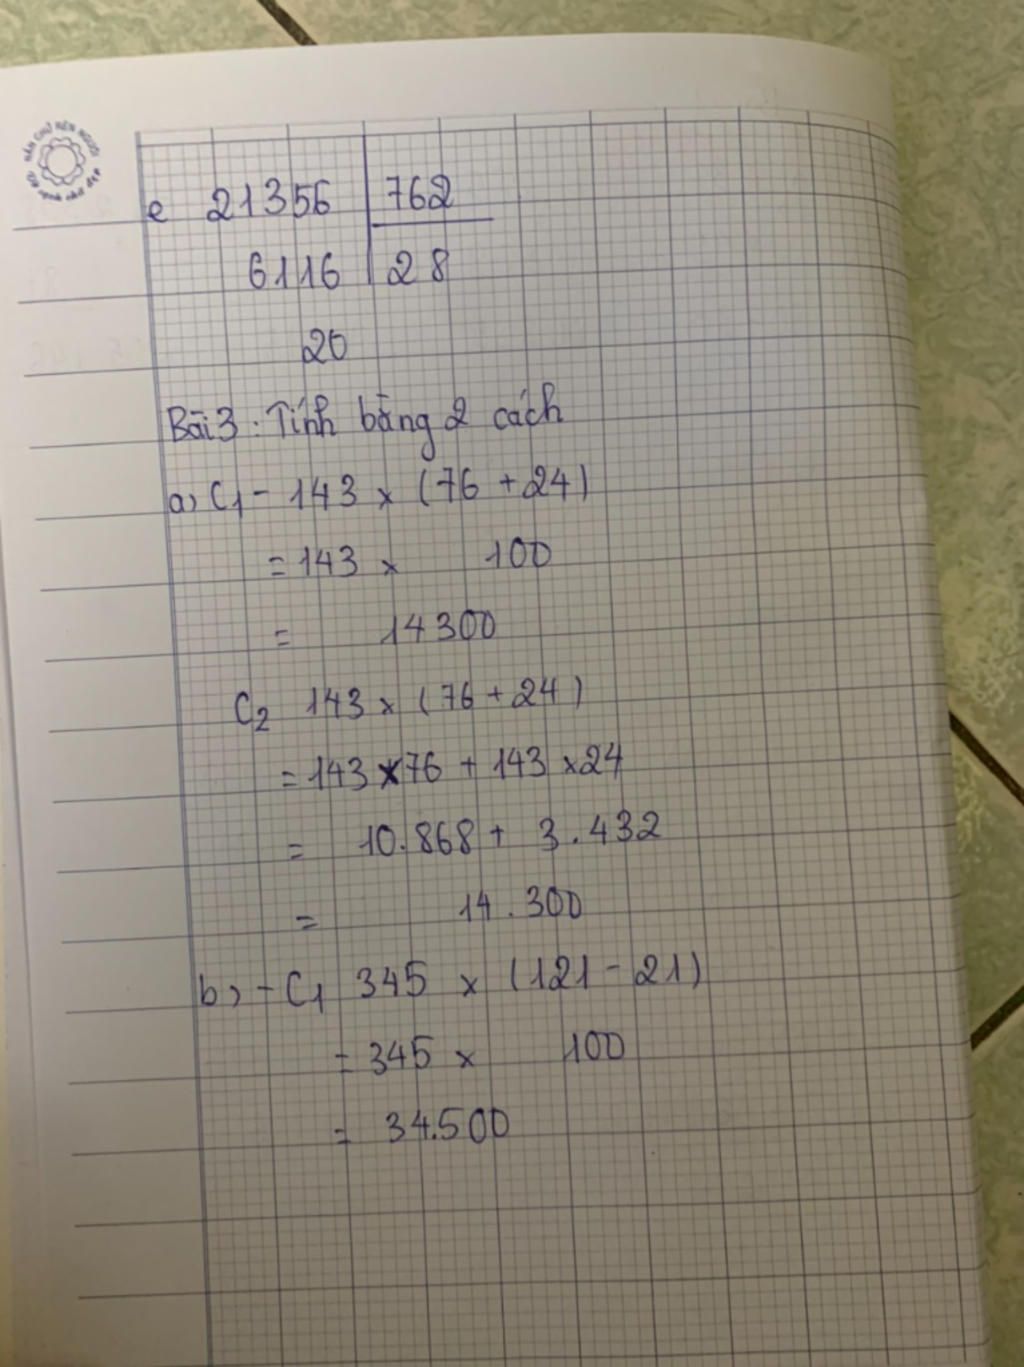 NẮN CHỮ RÈN NGƯỜI
e 21356 762
6116 28
20
Bài 3: Tính bằng 2 cách
a, C1 - 143 x (76 + 24)
= 143 x 100
= 14300
C2 143 x (76 + 24)
= 143 x 76 + 143 x 24
= 10.868 + 3.432
= 14.300
b, - C1 345 x (121 - 21)
= 345 x 100
= 34.500